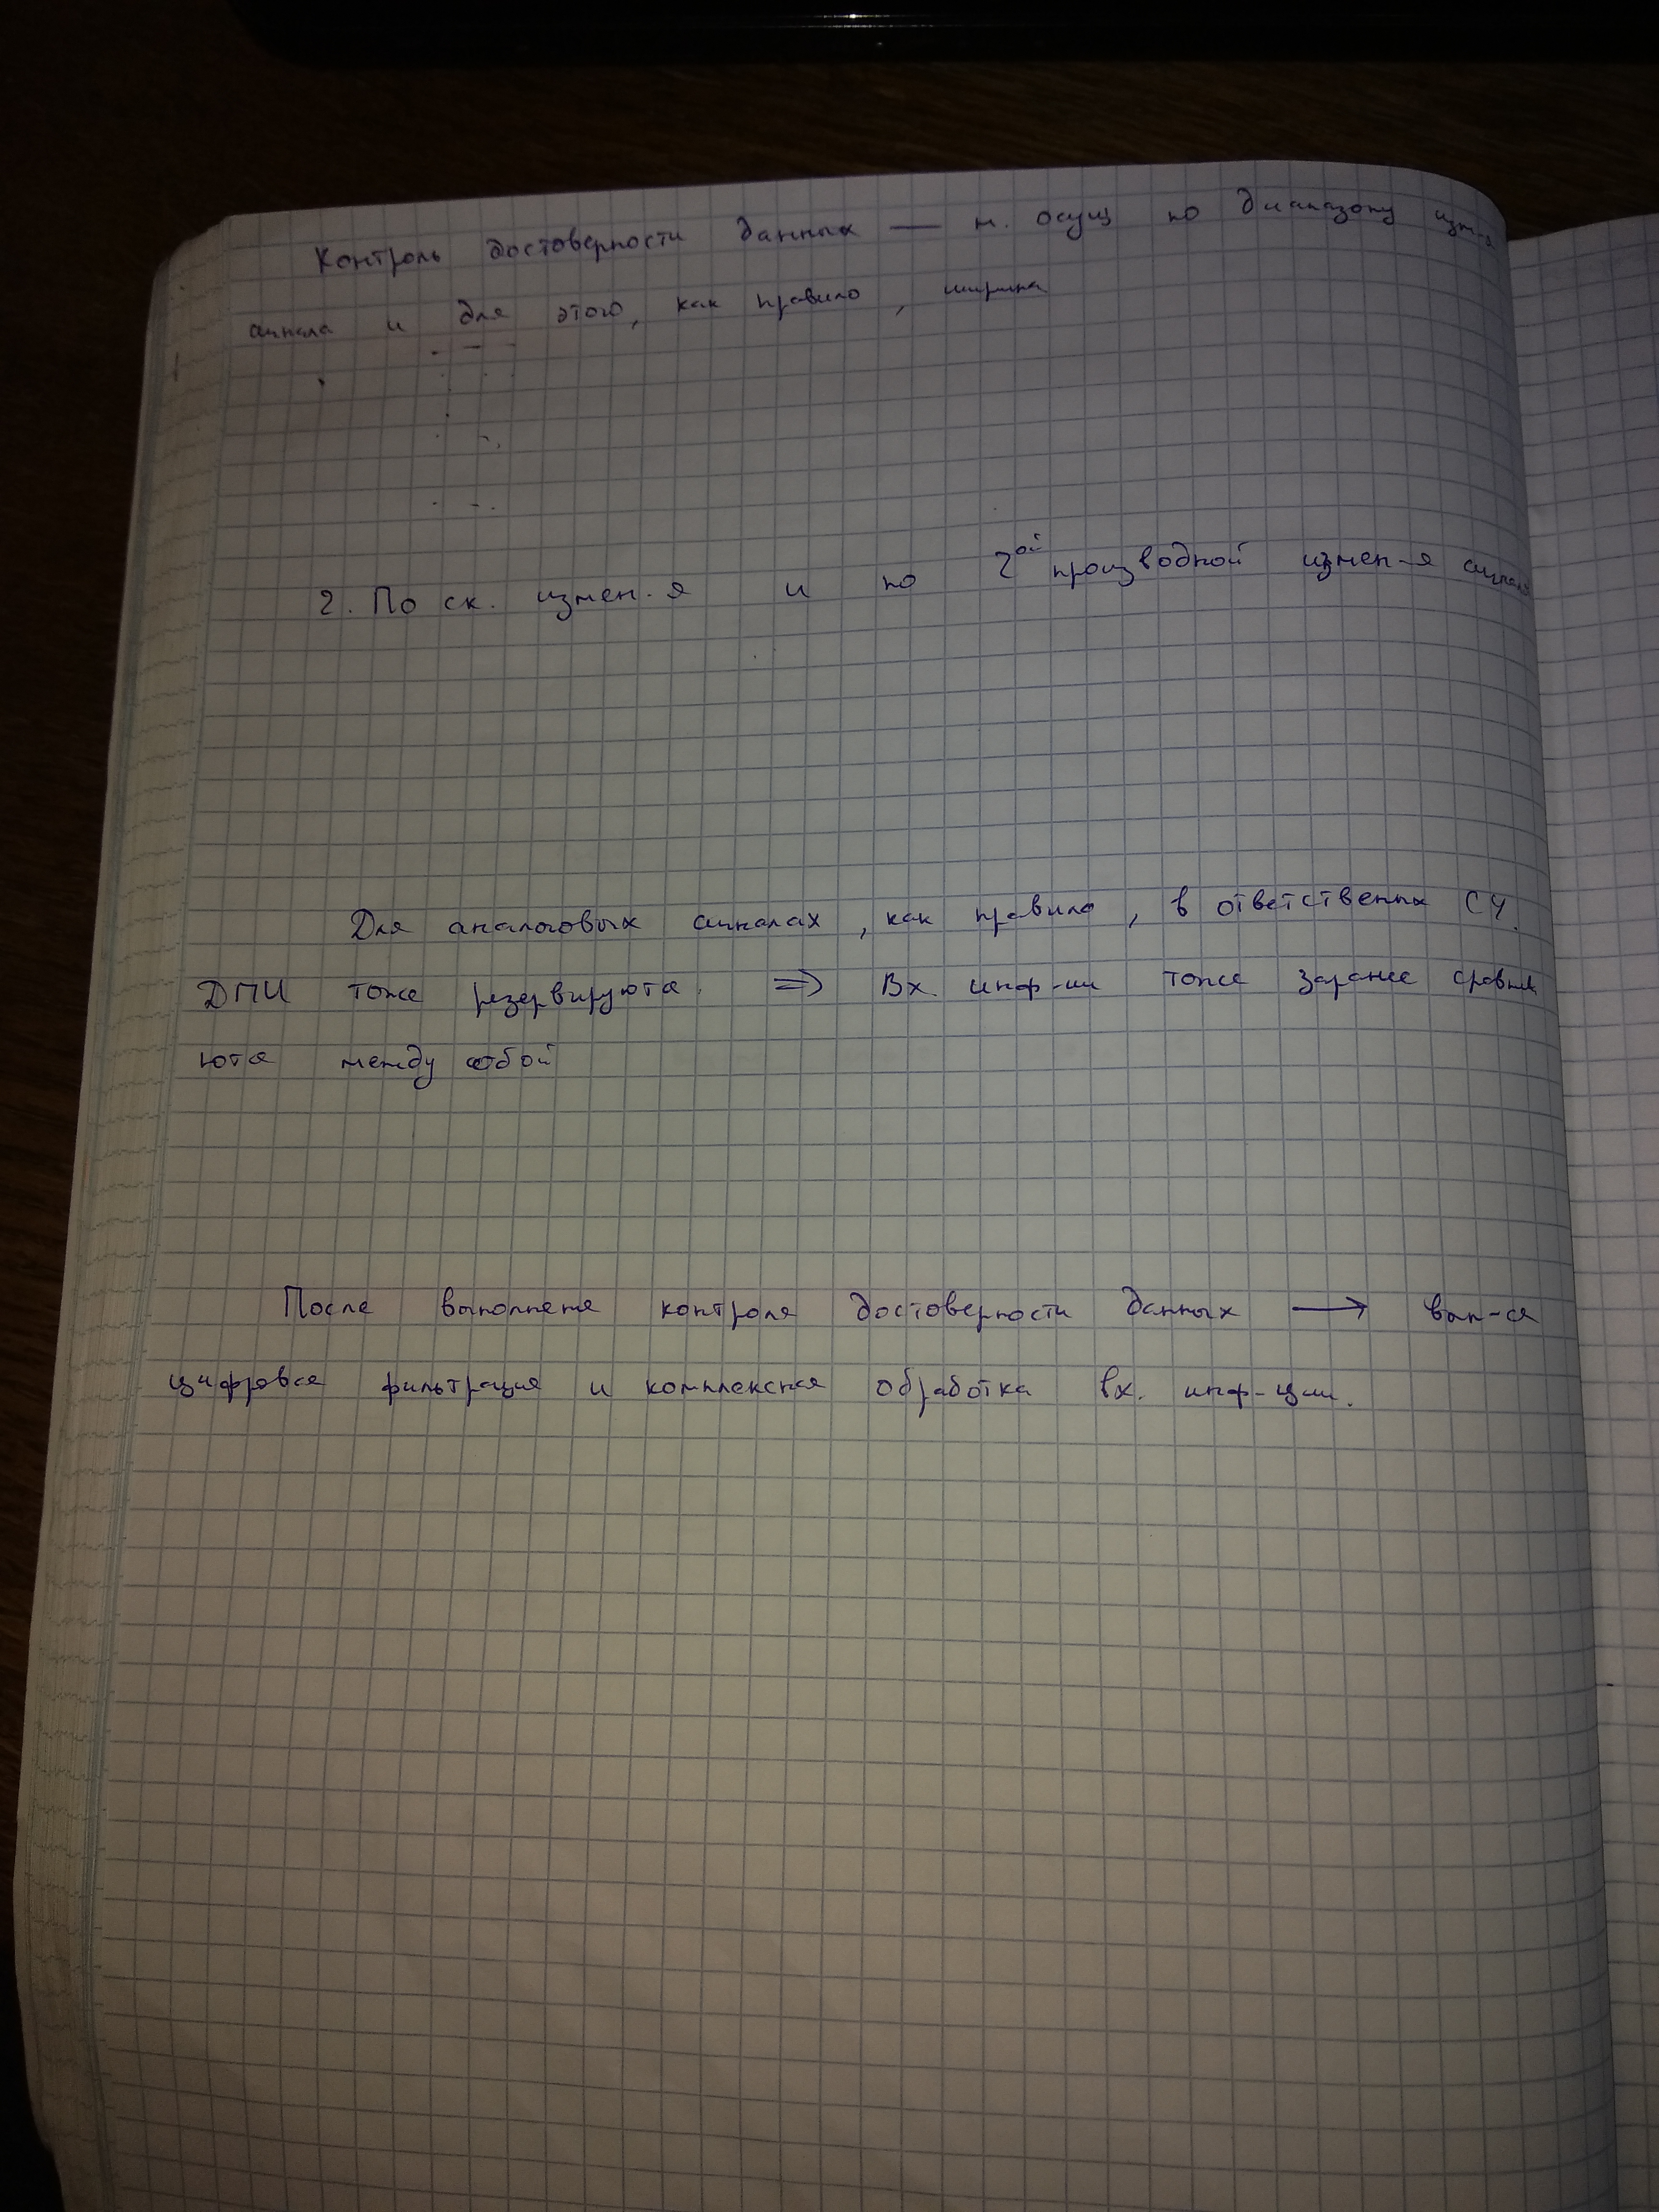 Контроль достоверности данных — м. осущ по диапазону изм-я
сигнала и для этого, как правило, ширина
2. По ск. измен-я и по 2ой производной измен-я сигнала
Для аналоговых сигналах, как правило, в ответственных СУ.
ДПИ тоже резервируются. => Вх. инф-ии тоже заранее сравнив
ются между собой
После выполнене контроля достоверности данных → вып-ся
цифровая фильтрация и комплексная обработка вх. инф-ции.